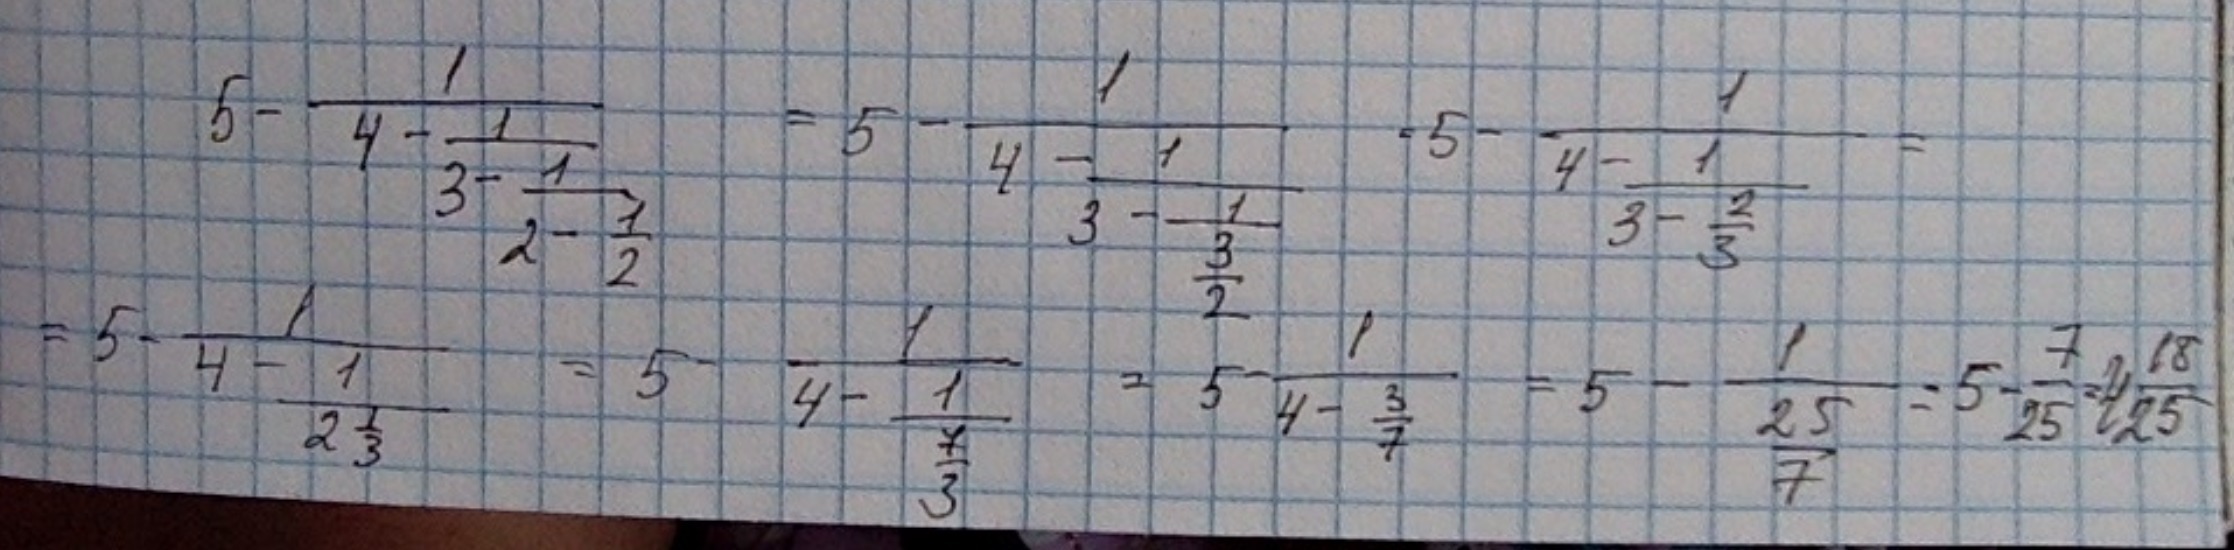 5 - \frac{1}{4 - \frac{1}{3 - \frac{1}{2 - \frac{1}{2}}}} = 5 - \frac{1}{4 - \frac{1}{3 - \frac{1}{\frac{3}{2}}}} = 5 - \frac{1}{4 - \frac{1}{3 - \frac{2}{3}}} =
= 5 - \frac{1}{4 - \frac{1}{2\frac{1}{3}}} = 5 - \frac{1}{4 - \frac{1}{\frac{7}{3}}} = 5 - \frac{1}{4 - \frac{3}{7}} = 5 - \frac{1}{\frac{25}{7}} = 5 - \frac{7}{25} = 4\frac{18}{25}